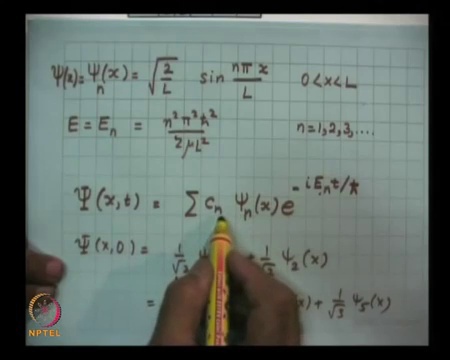 Ψ(x) = Ψ_n(x) = √(2/L) sin nπx/L 0 < x < L
E = E_n = n²π²ħ²/2μL² n = 1, 2, 3, ....
Ψ(x, t) = Σ c_n Ψ_n(x) e^{-iE_n t/ħ}
Ψ(x, 0) = 1/√2 Ψ + 1/√2 Ψ_2(x)
= (x) + 1/√3 Ψ_5(x)
NPTEL